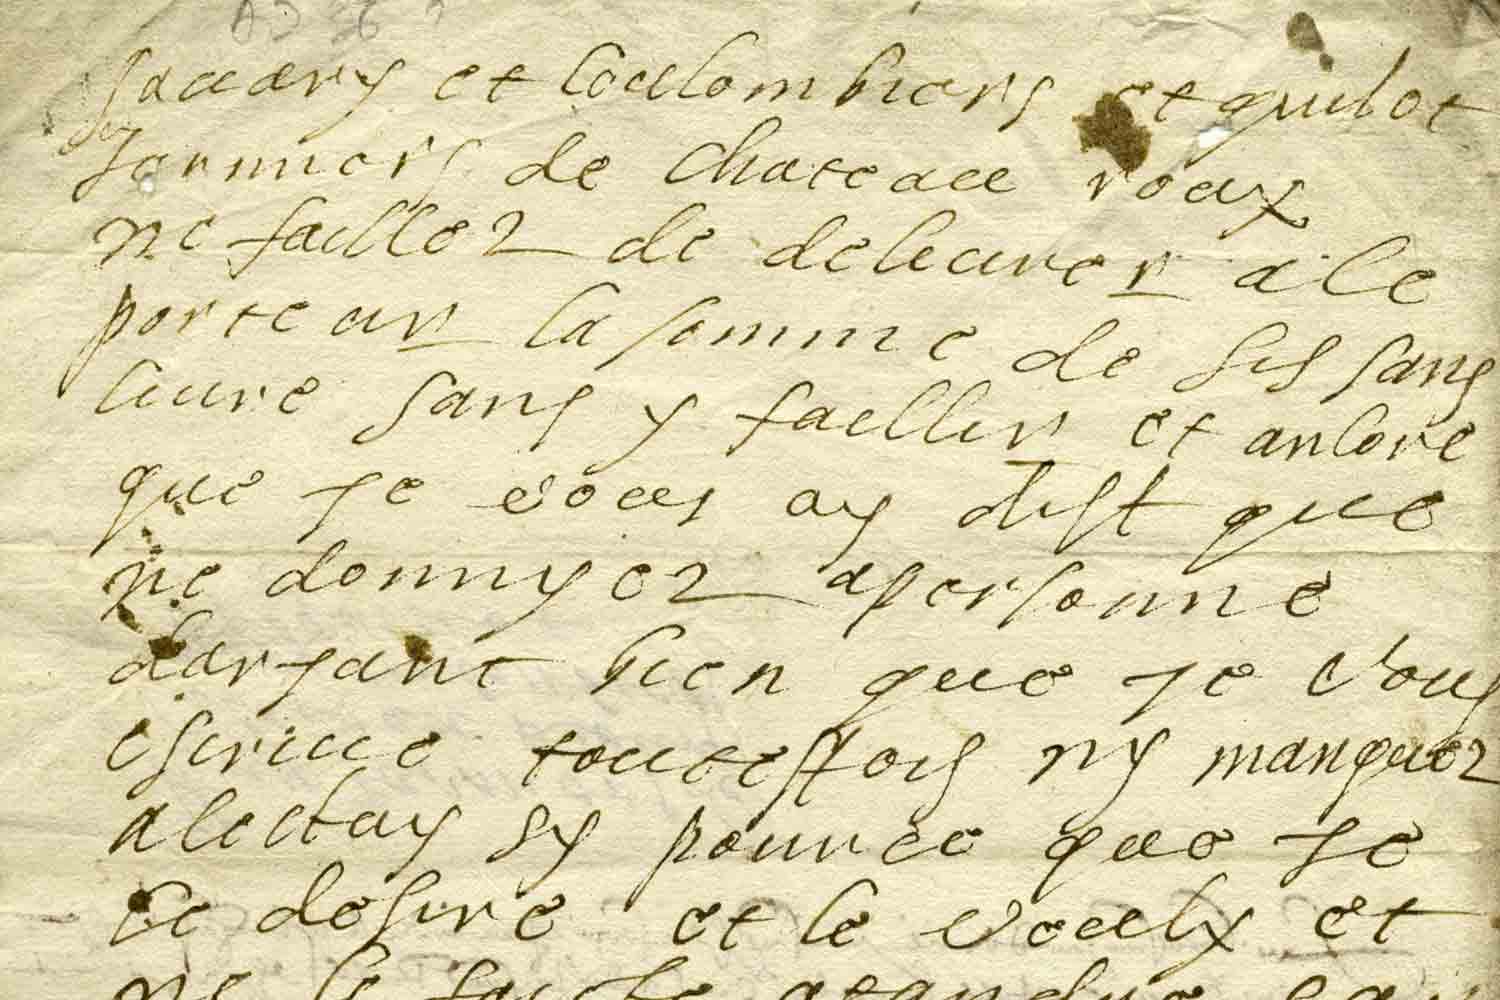 Sauary et Coulombiers et guilot
formiers de Chateau roux
ne faillez de deliurer a le
porteur la somme de sis sans
liure sans y faillir et ancore
que je vous ay dist que
ne donnyez a personne
darjant bien que je vous
escriue touteffois ny manquez
a lectay sy pource que je
le desire et le veulx et
ne le